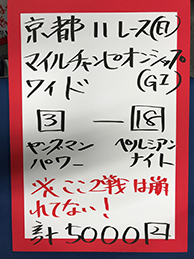 京都11レース(日)
マイルチャンピオンシップ
ワイド (GI)
3 — 18
ヤングマン ペルシアン
パワー ナイト
※ここ2戦は崩
れてない!
計5000円